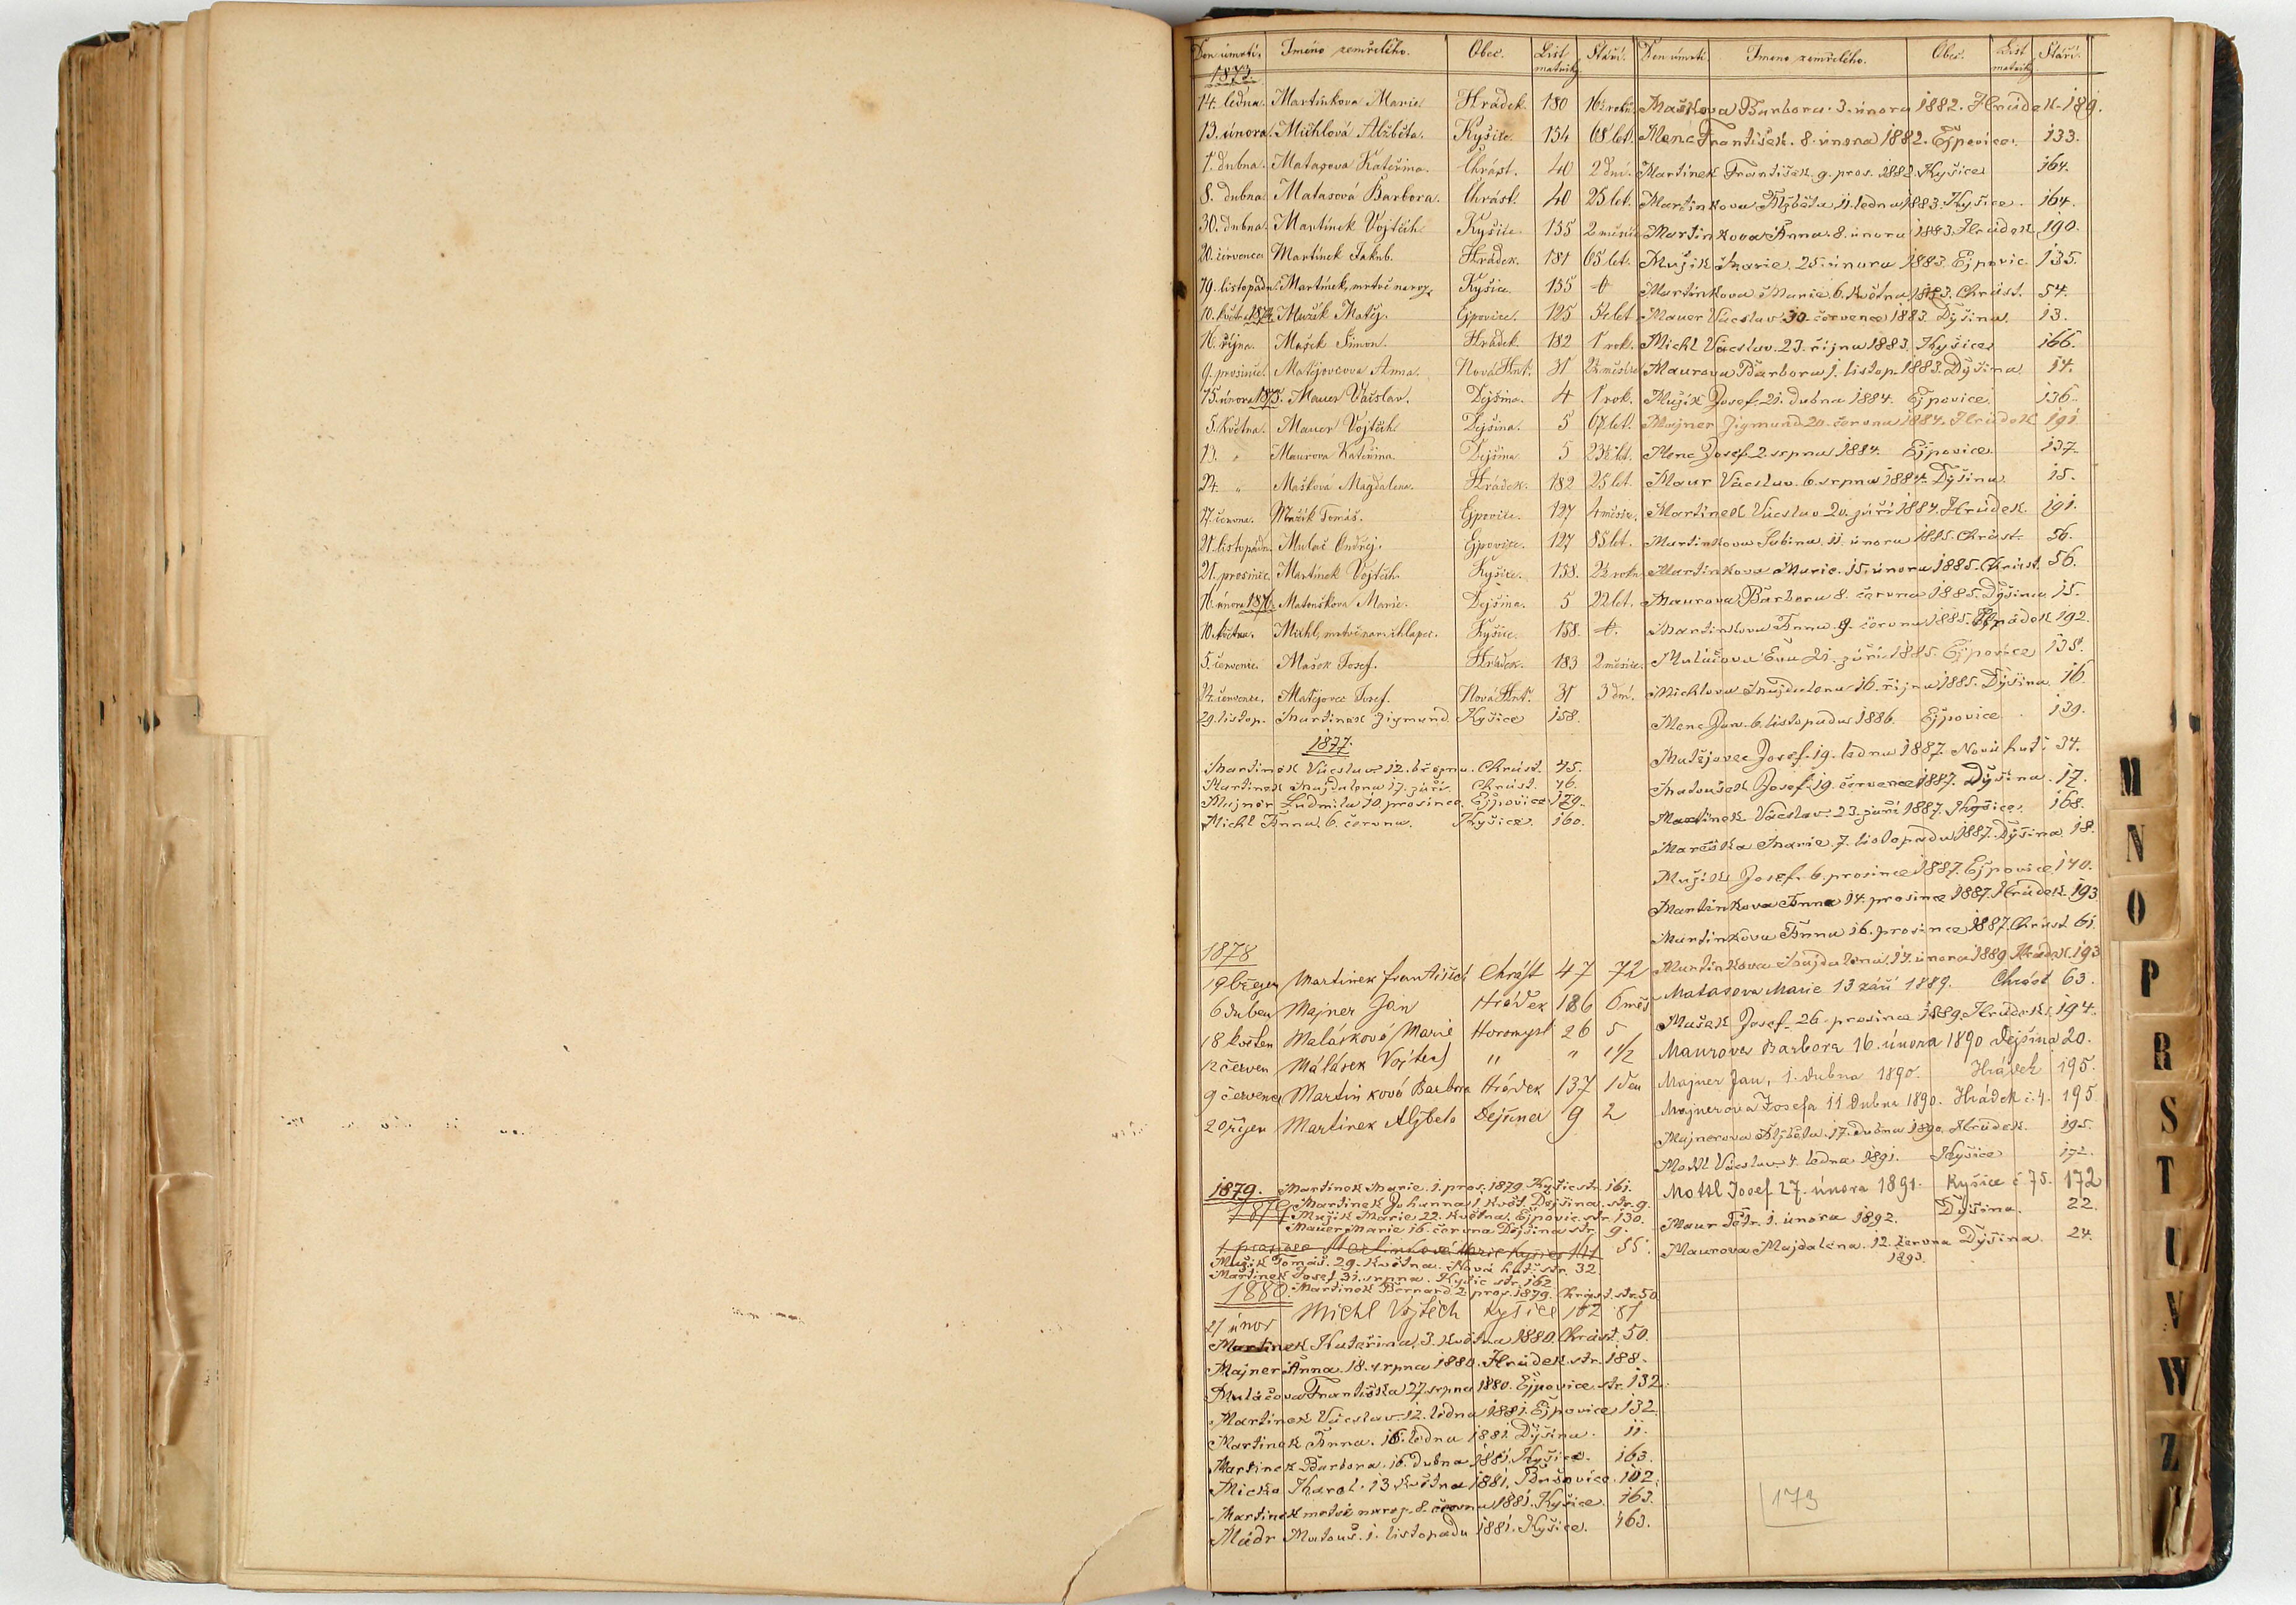 Den úmrtí. Jméno zemřelého. Obec. List matriky Stáří.
1873.
14. ledna. Martínkova Marie Hrádek 180 16½ roků
13. února. Michlová Alžběta. Kyšice 154 68 let.
1. dubna. Matasova Kateřina. Chrást. 40 2 dní.
8. dubna. Matasová Barbora. Chrást. 40 25 let.
30. dubna. Martínek Vojtěch Kyšice 155 2 měsíce
20. července Martínek Jakub. Hrádek. 181 65 let.
19. listopadu. Martínek, mrtvě naroz. Kyšice 155
10. května 1874 Mužík Matěj. Ejpovice. 125 let
16. října. Mašek Šimon. Hrádek. 182 1 rok.
9. prosince. Matějovcova Anna. Nová Huť. 31
15. února 1875. Mauer Václav. Dejšina. 4 1 rok.
5. Května. Mauer Vojtěch Dejšina. 5 67 let.
13. " Maurova Kateřina Dejšina 5 23½ let.
24. " Mašková Magdalena. Hrádek. 182 25 let.
17. června. Mužík Tomáš. Ejpovice. 127 4 měsíce.
21. listopadu. Mulač Ondřej. Ejpovice. 127 85 let.
21. prosince. Martínek Vojtěch Kyšice. 158. 2½ roku
16. února 1876 Matouškova Marie. Dejšina. 5 22 let.
10. května. Michl, mrtvě nar. chlapec. Kyšice. 158.
5. červenec. Mašek Josef. Hrádek. 183 2 měsíce.
24. července. Matějovec Josef. Nová Huť. 31 3 dní.
29. listop. Martinek Zigmund Kyšice 158.
1877.
Martinek Václav 12. března. Chrást. 45.
Martinek Majdalena 17. září. Chrást. 46.
Majner Ludmila 10. prosince. Ejpovice 129.
Michl Anna. 6. června. Kyšice. 160.
1878
19 březen Martinek František Chrást 47 72
6 duben Majner Jan Hrádek 186 6 měs
18 květen Malásková Marie Horomysl 26 5
12 červen Málásek Vojtěch " " 1½
9 červenec Martinková Barbora Hrádek 137 1 den
20 říjen Martinek Alžběta Dejšina 9 2
1879. Martinek Marie. 1. pros. 1879. Kyšice str. 161.
1879 Martinek Johanna 1. květ. Dejšina. str. 9.
Mužik Marie 22. Května. Ejpovic. str. 130.
Mauer Marie 16. června Dejšina str. 9.
1. prosince Martinková Marie Kyšice 161 55.
Mužik Tomáš. 29. Května. Nová huť. str. 32.
Martinek Josef 31. srpna. Kyšic str. 162
1880. Martinek Bernard 2. pros. 1879. Chrást. str. 50
21 únor Michl Vojtěch Kyšice 162 81
Martinek Kateřina, 3. Května 1880. Chrást. 50.
Majner Anna. 18. srpna 1880. Hrádek. str. 188.
Mulačova Františka 27. srpna 1880. Ejpovice. str. 132.
Martinek Václav. 12. ledna 1881. Ejpovice 132.
Martinek Anna. 16. ledna 1881. Dýšina. 11.
Martinek Barbora. 16. dubna 1881. Kyšice. 163.
Micka Karol. 13. Května 1881. Bušovice. 102.
Martinek mrtvě naroz. 8. června 1881. Kyšice. 163.
Mádr Matouš. 1. listopadu 1881. Kyšice. 163.
Den úmrtí. Jméno zemřelého. Obec. List matriky Stáří.
Maškova Barbora. 3. února 1882. Hrádek. 189.
Menc František. 8. února 1882. Ejpovice. 133.
Martinek František. 9. pros. 1882. Kyšice 164.
Martinkova Alžběta 11. ledna 1883. Kyšice. 164.
Martinkova Anna. 8. února 1883. Hrádek 190.
Mužik Marie. 25. února 1883. Ejpovic. 135.
Martinkova Marie. 6. Května 1883. Chrást. 54.
Mauer Václav 30. července 1883. Dýšina. 13.
Michl Václav. 23. října 1883. Kyšice. 166.
Maurova Barbora 1. listop. 1883. Dýšina 14.
Mužik Josef. 21. dubna 1884. Ejpovice 136.
Majner Zigmund 20. června 1884. Hrádek 191
Menc Josef 2. srpna 1884. Ejpovice 137.
Maur Václav. 6. srpna 1884. Dýšina 15.
Martinek Václav 20. září 1884. Hrádek. 191.
Martinkova Sabina 11. února 1885. Chrást. 56.
Martinkova Marie. 15. února 1885. Chrást. 56.
Maurova Barbora 8. června 1885. Dýšina 15.
Martinkova Anna. 9. června 1885. Hrádek 192.
Mulačova Eva 21. září 1885. Ejpovice 138.
Michlova Majdalena 16. října 1885. Dýšina 16.
Menc Jan. 6. listopadu 1886. Ejpovice 139.
Matějovec Josef. 19. ledna 1887. Nová huť. 34.
Matoušek Josef. 19. července 1887. Dýšina. 17.
Martinek Václav. 23. září 1887. Kyšice. 168.
Mareška Marie. 7. listopadu 1887. Dýšina 18.
Mužik Josef. 6. prosince 1887. Ejpovice 140.
Martinkova Anna 14. prosince 1887. Hrádek. 193
Martinkova Anna 16. prosince 1887. Chrást 61.
Martinkova Majdalena. 17. února 1889. Hrádek. 193
Matasova Marie 13 září 1889. Chrást 63.
Mašek Josef. 26. prosince 1889. Hrádek. 194.
Maurova Barbora 16. února 1890 Dejšina 20.
Majner Jan, 1. dubna 1890. Hrádek 195.
Majnerova Josefa 11 dubna 1890. Hrádek č. 4. 195
Majnerova Alžběta. 17. dubna 1890. Hrádek. 195.
Mottl Václav. 4. ledna 1891. Kyšice 172.
Mottl Josef 27. února 1891. Kyšice č 75. 172
Maur Petr. 1. února 1892. Dýšina. 22.
Maurova Majdaléna. 12. června Dýšina. 24.
1893.
173
M
N
O
P
R
S
T
U
V
W
Z